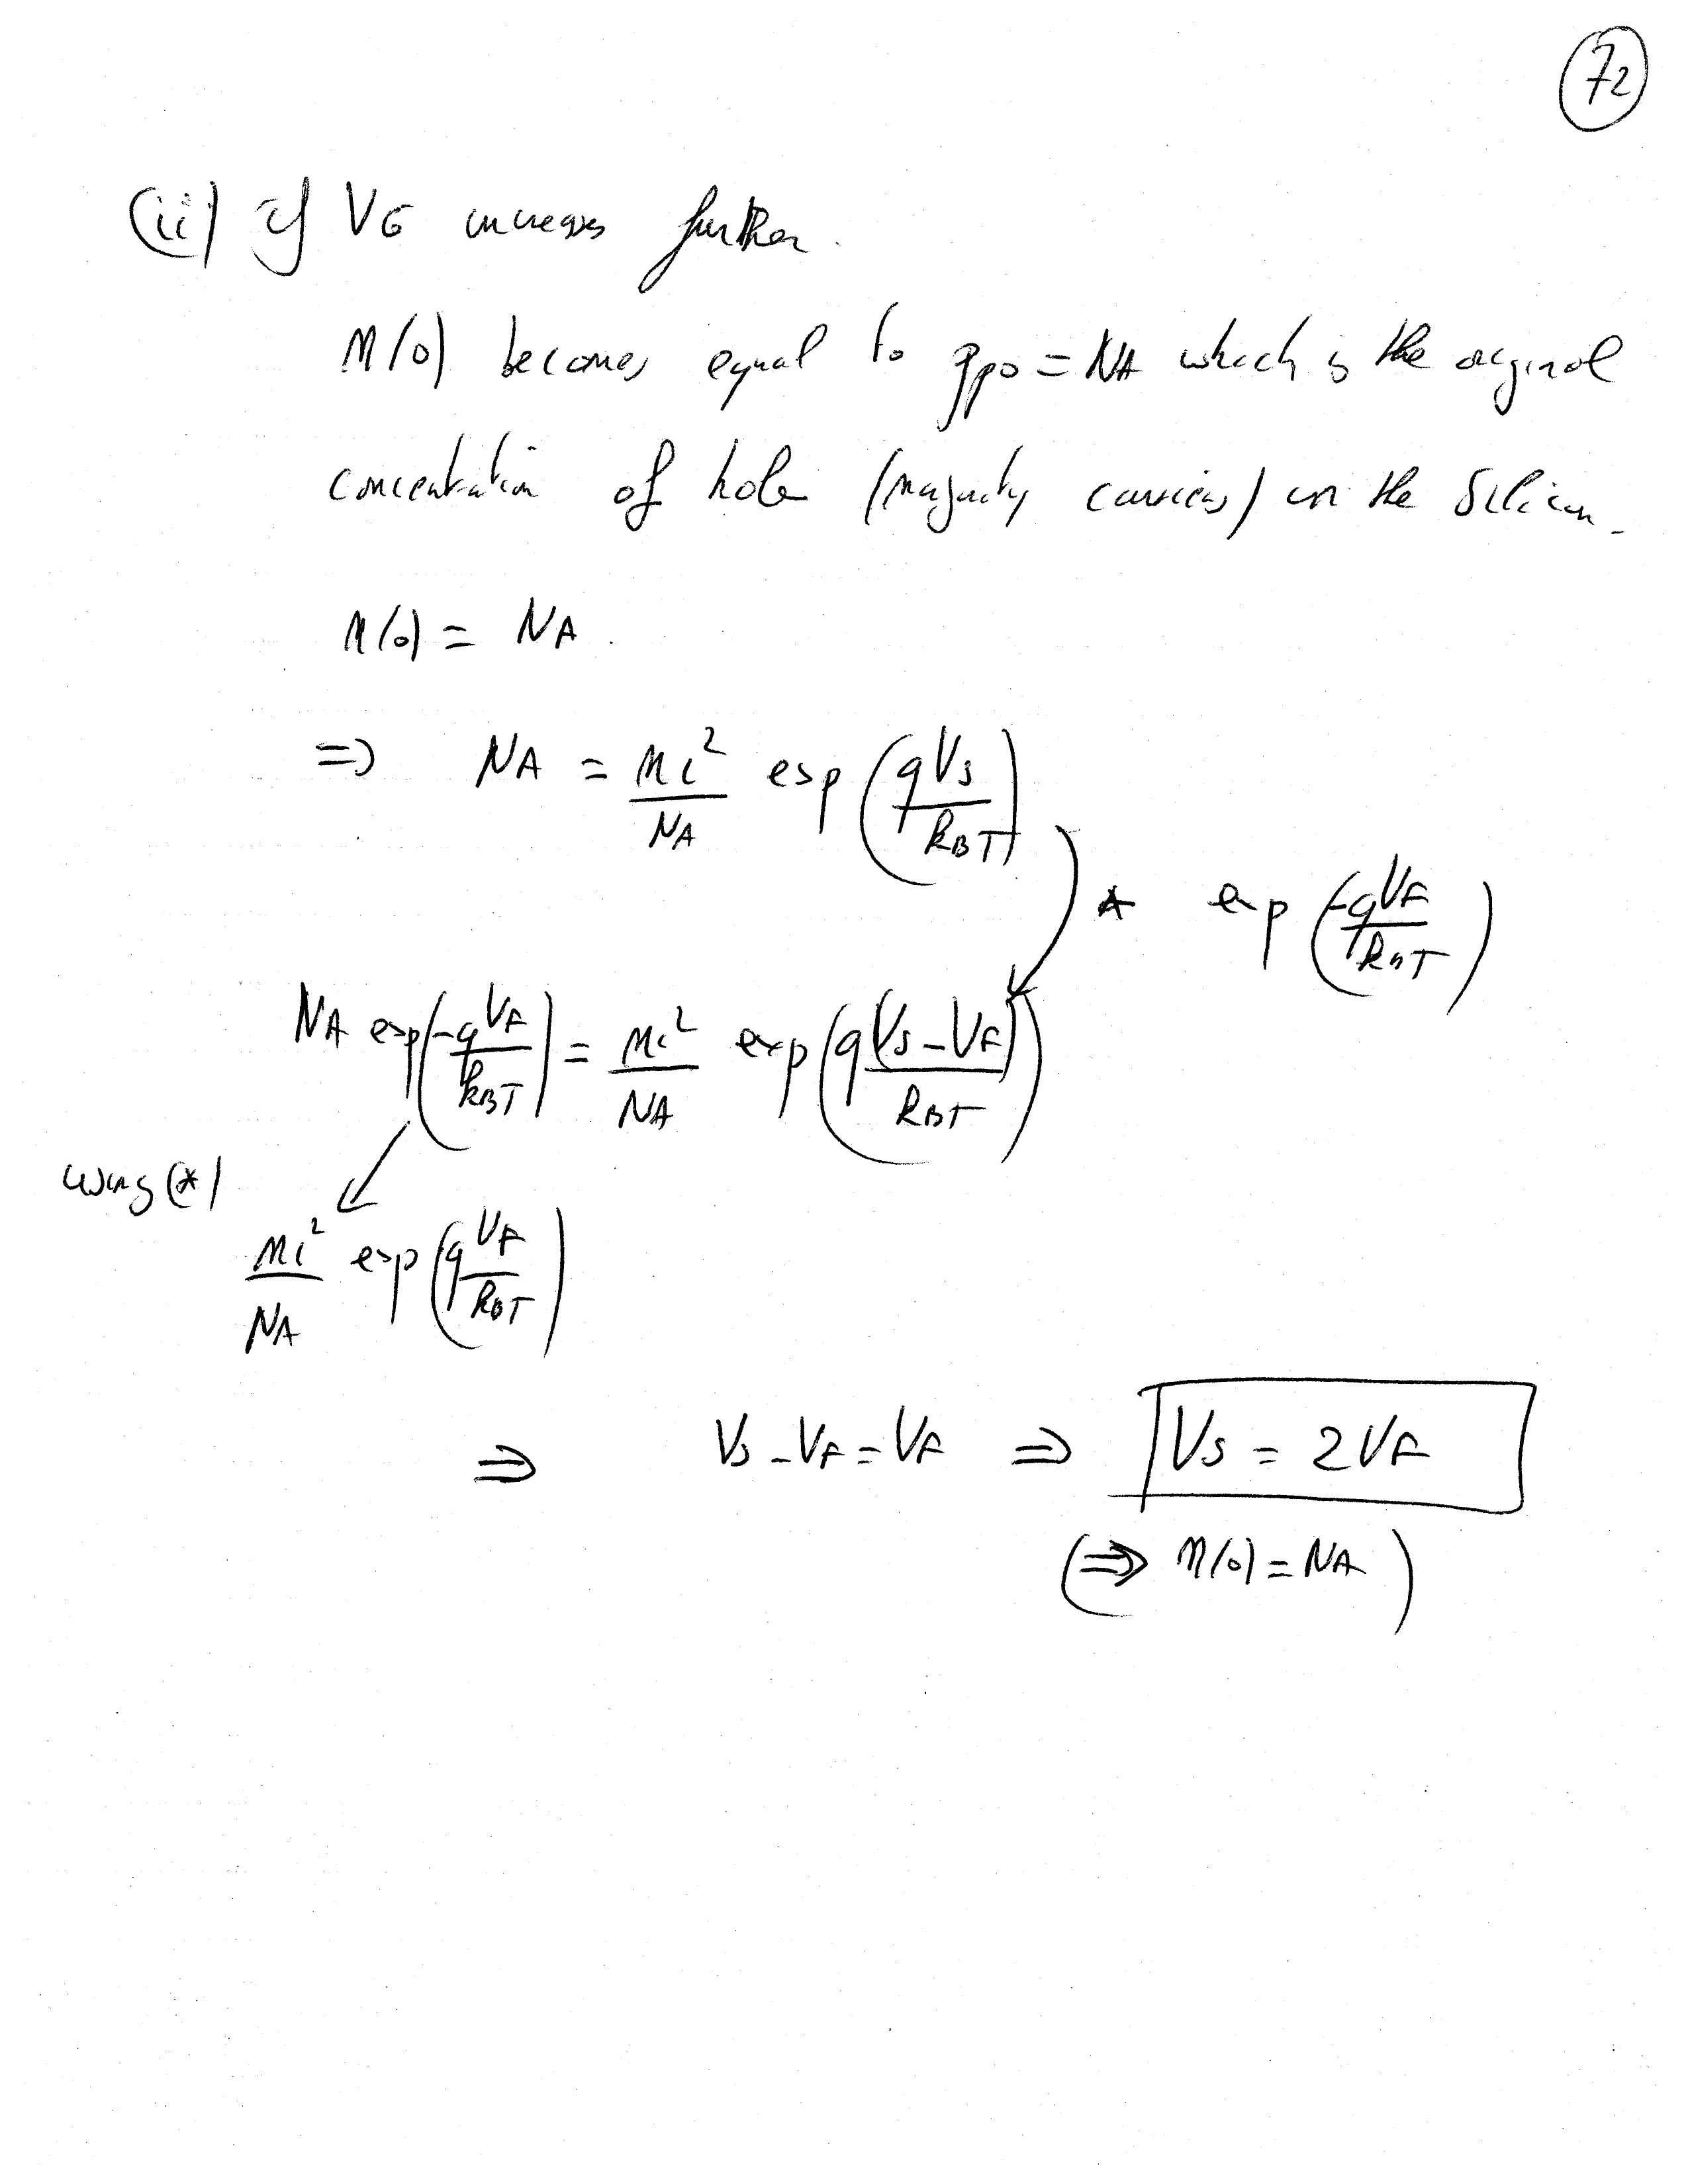 72
(ii) if VG increases further.
n(0) becomes equal to ppo = NA which is the original
concentration of hole (majority carriers) in the Silicon.
n(0) = NA.
=> NA = ni²/NA exp(qVs/kBT)
* exp(-qVF/kBT)
NA exp(-qVF/kBT) = ni²/NA exp(q(Vs-VF)/kBT)
using (*)
ni²/NA exp(qVF/kBT)
⇒ Vs - VF = VF ⇒ Vs = 2VF
(⇒ n(0) = NA)